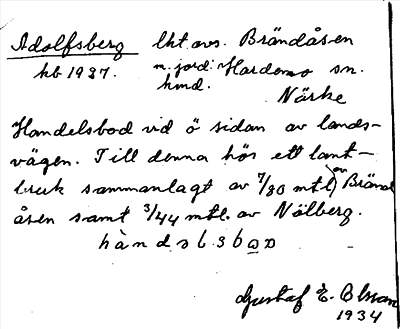 Adolfsberg lht avs. Brändåsen
kb 1937. n. jord: Hardemo sn.
hmd.
Närke
Handelsbod vid ö sidan av lands-
vägen. Till denna hör ett lant-
bruk sammanlagt av 7/80 mtl av Bränd
åsen samt 3/44 mtl. av Nölberg.
Gustaf E. Olsson
1934